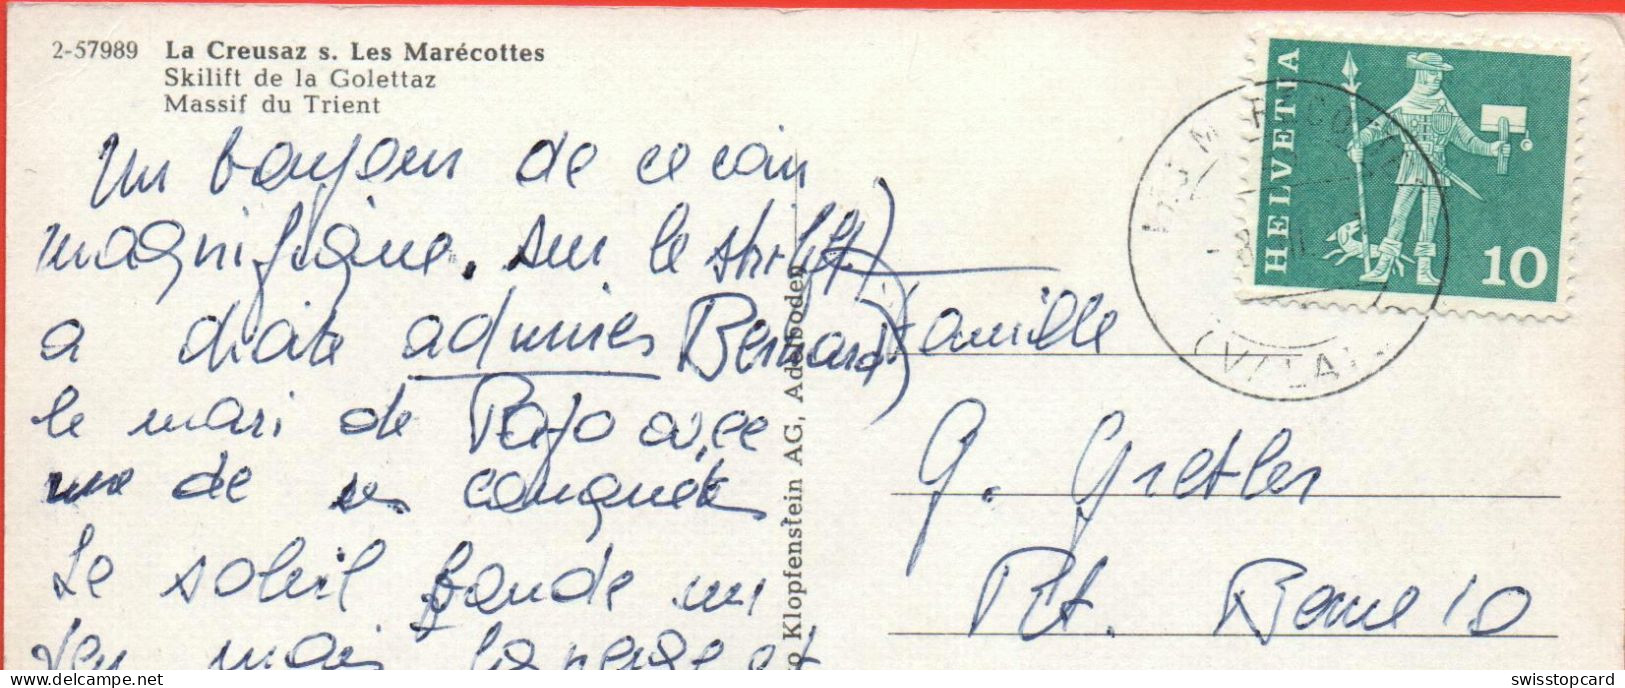 2-57989 La Creusaz s. Les Marécottes
Skilift de la Golettaz
Massif du Trient
HELVETIA
10
Un bonjour de ce coin
magnifique. Sur le skilift
a droite admires Bernard
le mari de avec
une de ses conquêtes
Le soleil
mais la neige et
Klopfenstein AG, Adelboden
Famille
G. Gretler
Rt. Berne 10
Delcampe.net
swisstopcard